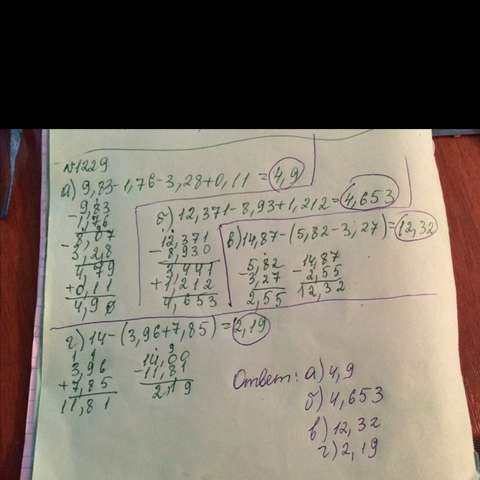 №1229
а) 9,83-1,76-3,28+0,11=4,9
9,83
-1,76
8,07
-3,28
4,79
+0,11
4,90
б) 12,371-8,93+1,212=4,653
12,371
-8,930
3,441
+1,212
4,653
в) 14,87-(5,82-3,27)=12,32
5,82
-3,27
2,55
14,87
-2,55
12,32
г) 14-(3,96+7,85)=2,19
1 1
3,96
+7,85
11,81
14,00
-11,81
2,19
Ответ: а) 4,9
б) 4,653
в) 12,32
г) 2,19